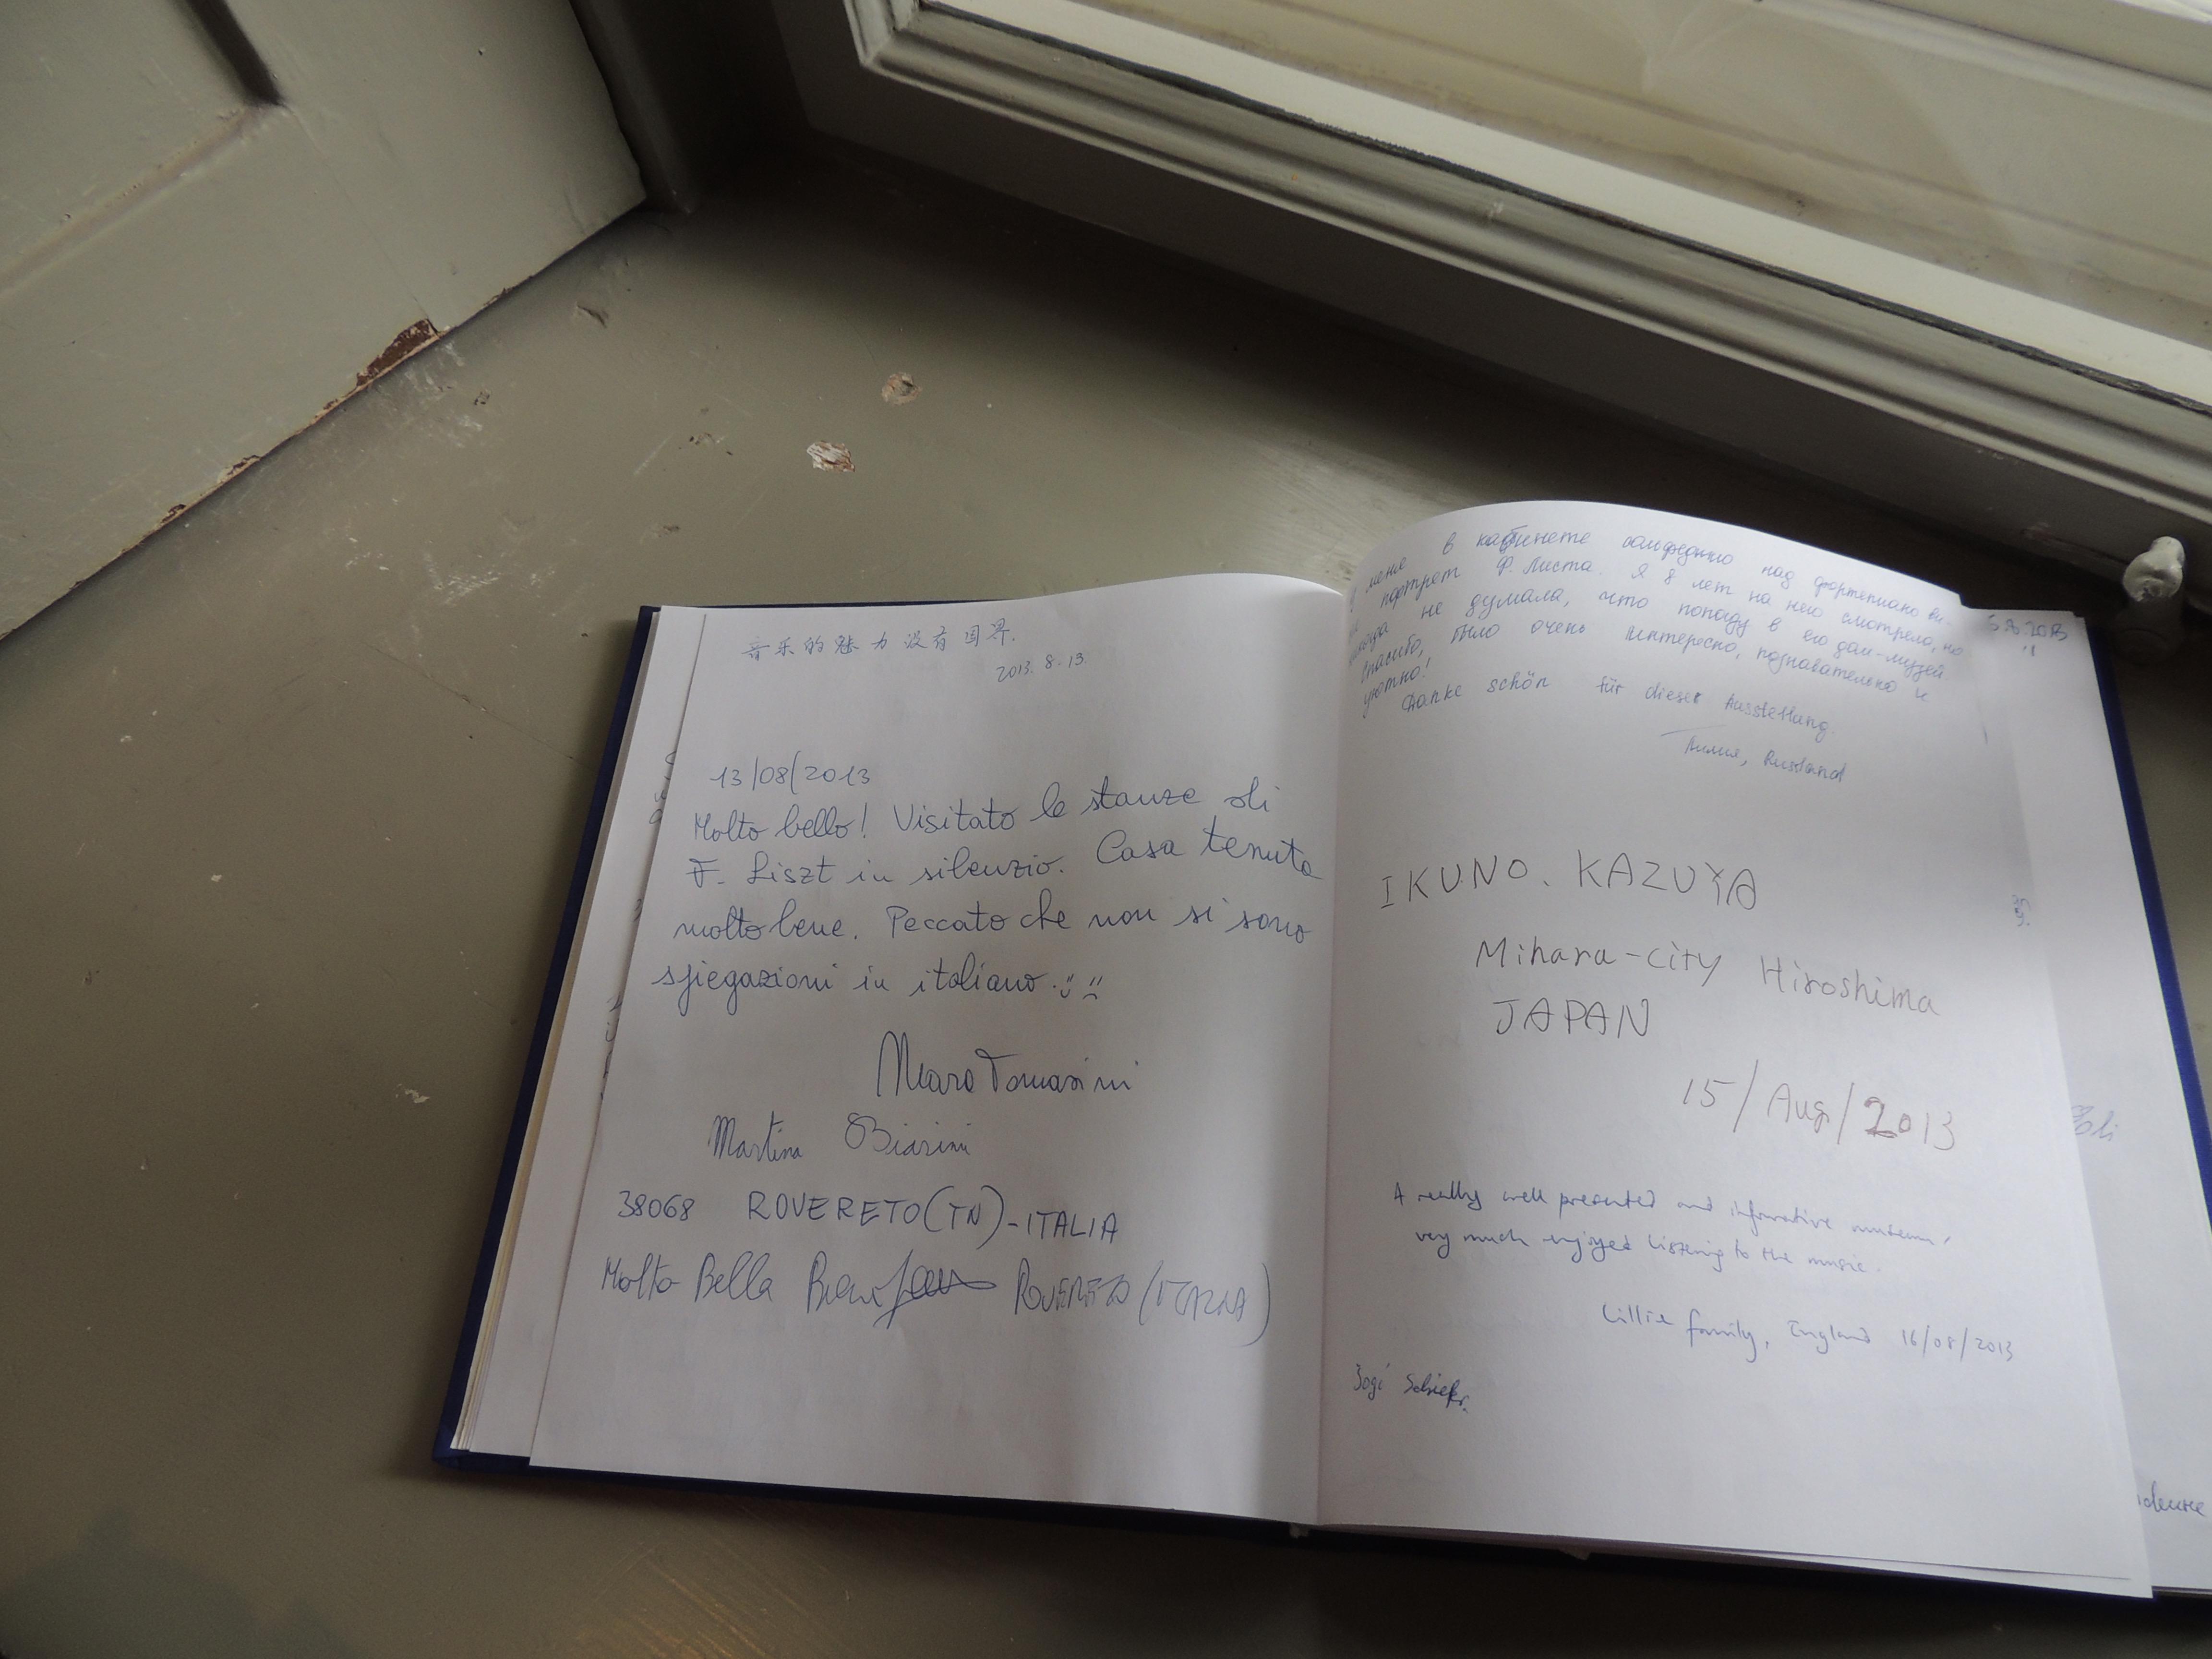 音乐的魅力没有国界.
2013.8.13.
13/08/2013
Molto bello! Visitato le stanze di
F. Liszt in silenzio. Casa tenuta
molto bene. Peccato che non si sono
spiegazioni in italiano.
Mara Tomasini
Martina
38068 ROVERETO (TN) - ITALIA
Molto Bella ROVERETO (ITALIA)
У меня в кабинете сольфеджио над фортепиано ви-
портрет Ф. Листа. Я 8 лет на него смотрела, но
не думала, что попаду в его дом-музей
Спасибо, было очень интересно, познавательно и
уютно!
Danke schön für dieser Ausstellung.
Лилия, Russland
IKUNO. KAZUYA
Mihara-city Hiroshima
JAPAN
15/Aug/2013
A really well presented and informative museum,
very much enjoyed listening to the music.
Lillie family, England 16/08/2013